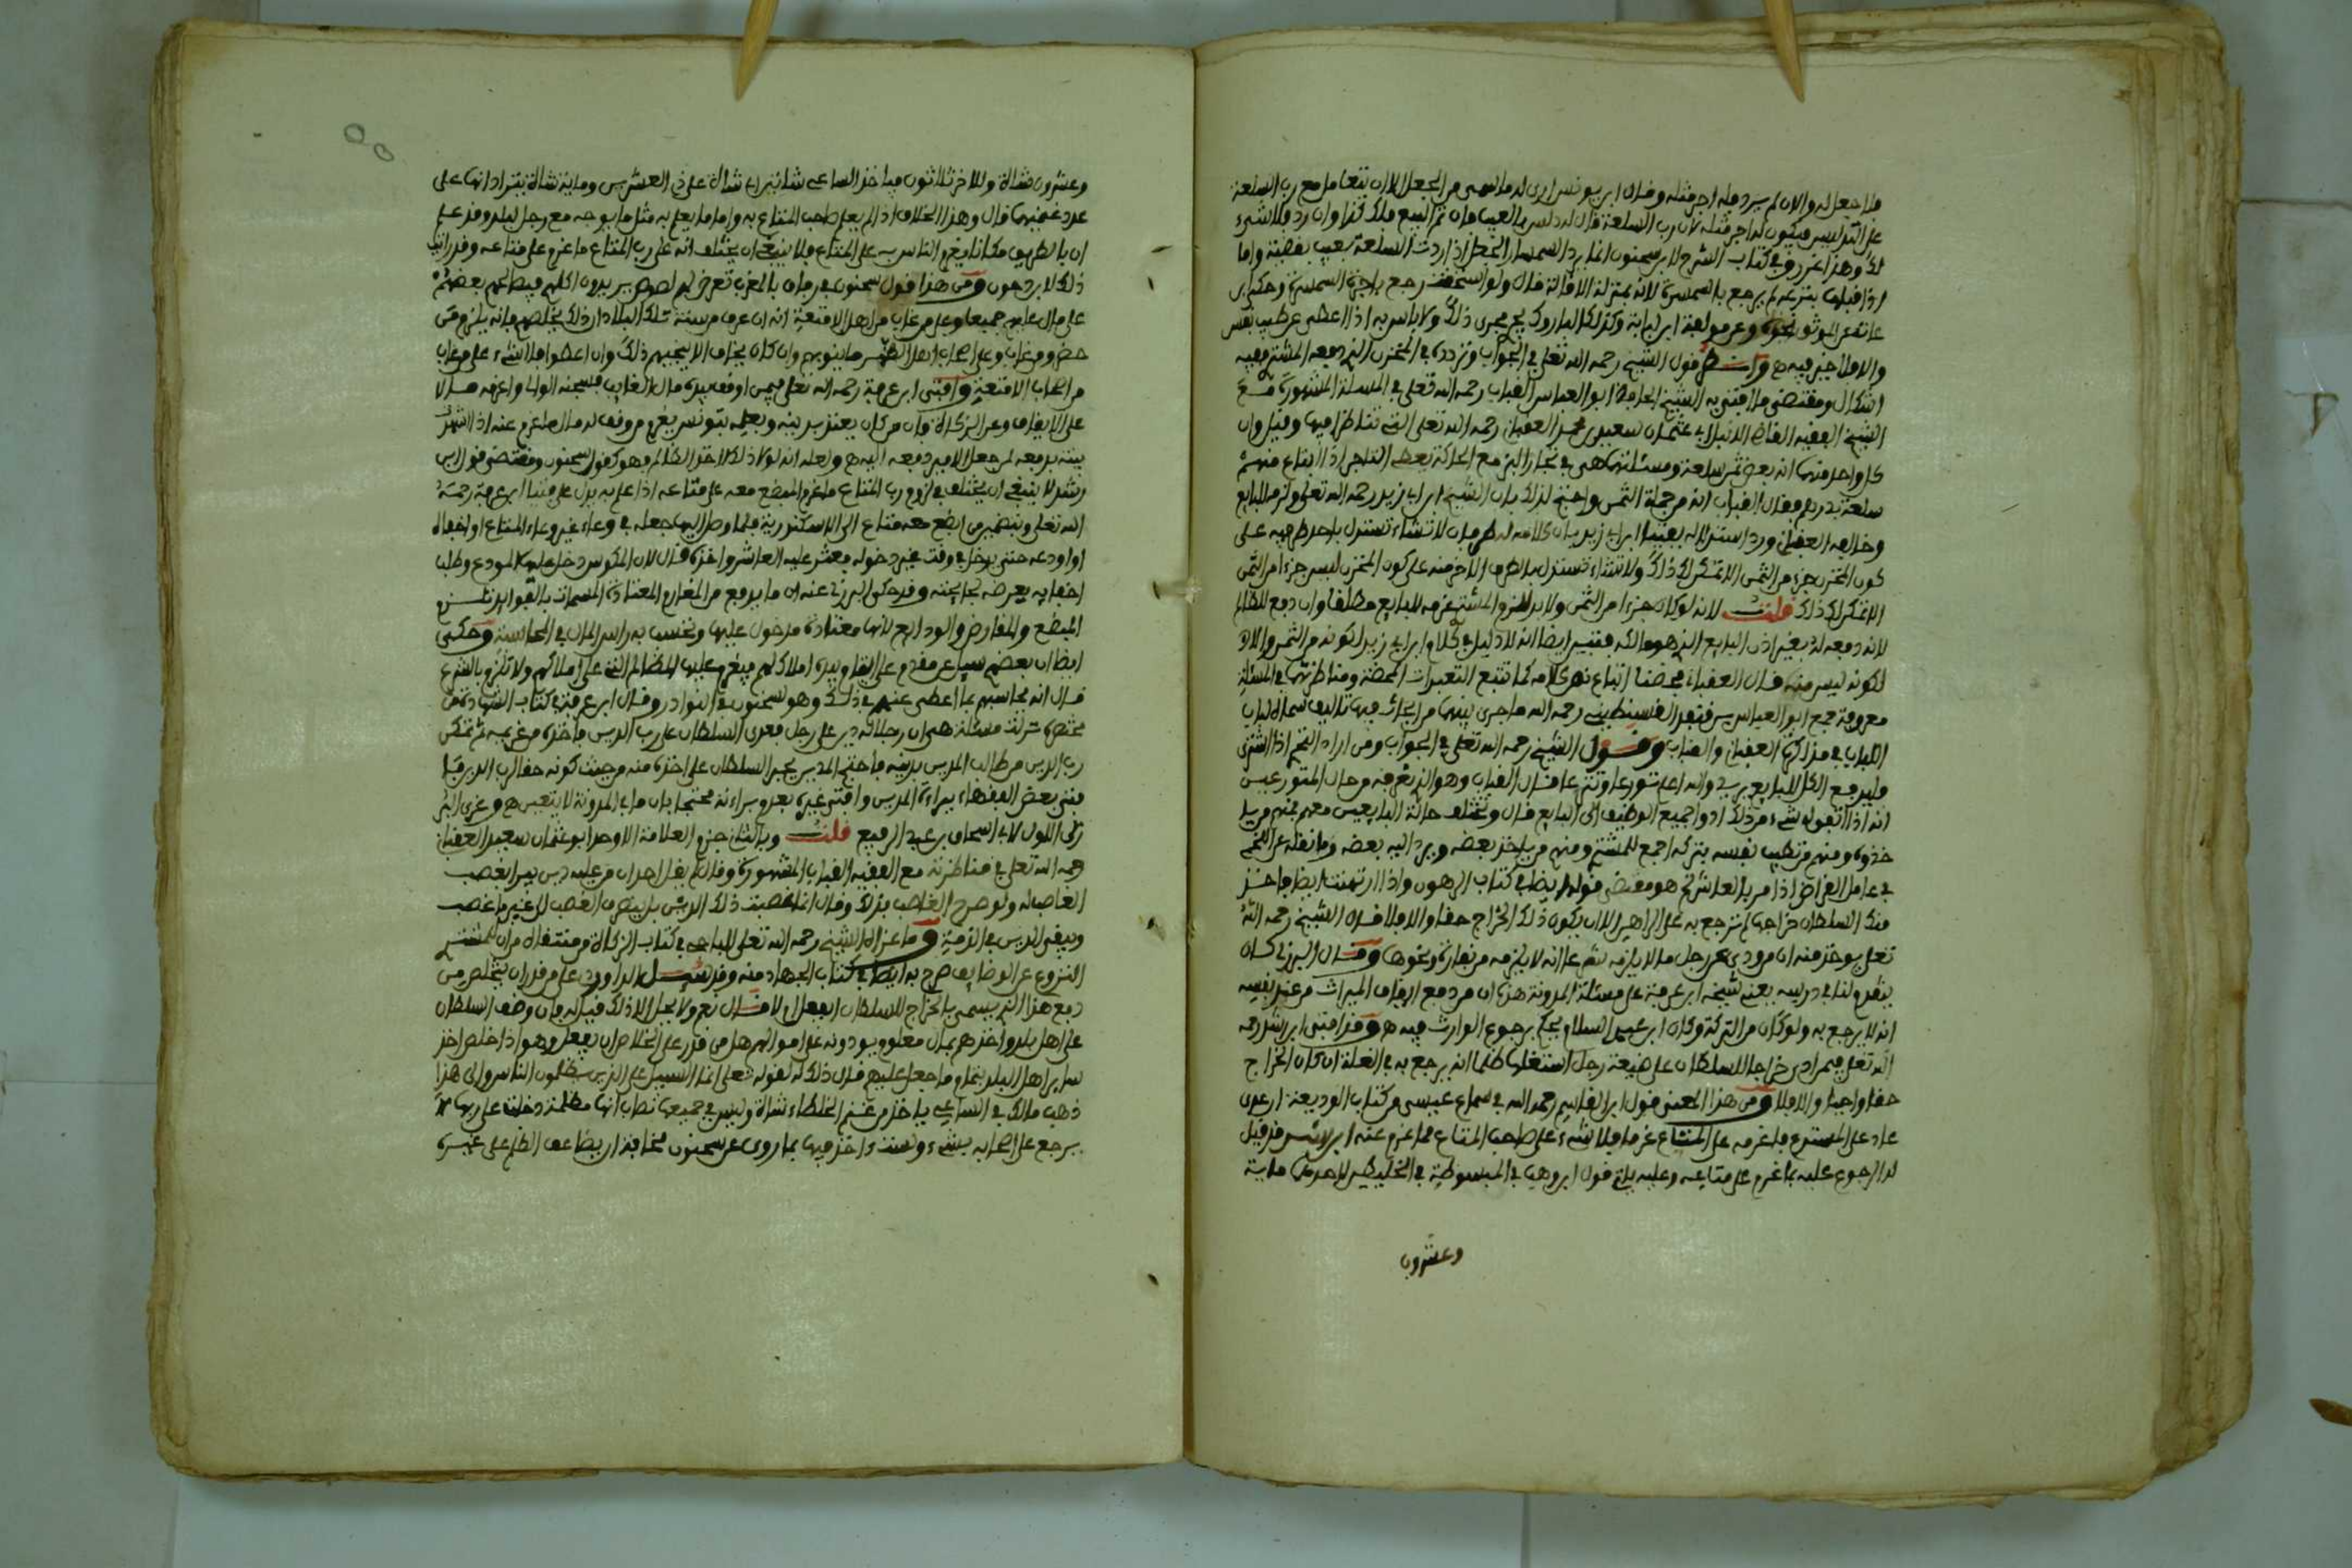 فلا جعل له والا ان لم يرد فله اجر مثله وقال ابن يونس ارى له ما سمى من الجعل الا ان يتعامل مع رب السلعة
على التدليس فيكون له اجر مثله لان رب السلعة قال له دلس بالعيب فان تم البيع فلك كذا وان رد فلا شيء
لك وهذا في كتاب الشرح لابن سحنون انما يرد السمسار الجعل اذا ردت السلعة بعيب بقضية واما
اذا قبلها بتبرعه لم يرجع بالسمسرة لانه بمنزلة الاقالة قال ولو استحقت رجع باجرة السمسرة وحكى ابن
عات عن الموثق نحوه وعن مولفة ابن لبابة وكذلك الماروك يجري مجرى ذلك ولا باس به اذا اعطى عن طيب نفس
والا فلا خير فيه هـ وانظر قول الشيخ رحمه الله تعلى في الجواب وتردده في المخزن الذي دفعه المشتري ففيه
اشكال ومقتضى ما افتى به الشيخ الحافظ ابو العباس القباب رحمه الله تعلى في المسئلة المشهورة مع
الشيخ الفقيه القاضي ابي عثمان سعيد بن محمد العقباني رحمه الله تعلى التي تناظرا فيها وقيل وان
كل واحد منها انه بعض ثمن سلعة ومسئلتهما هي في تجار البز مع الحاكة يعطي التاجر اذا ابتاع منهم
سلعة بدرهم فقال القباب انه من جملة الثمن واحتج لذلك بان الشيخ ابن ابي زيد رحمه الله تعلى
وخالفه العقباني ورد استدلاله بفتيا ابن ابي زيد بان كلامه له طرفان لا تشاء تستدل باحد طرفيه على
كون المخزن جزء من الثمن الا امكن لك ذلك ولا تشاء تستدل بالطرف الاخر منه على كون المخزن ليس جزءا من الثمن
الا امكن لك ذلك قلت لانه لو كان جزءا من الثمن ولا بد للزم المشتري غرمه للبايع مطلقا وان دفع للظالم
لانه دفعه له بغير اذن البايع الذي هو مالكه فتبين ايضا انه لا دليل في كلام ابن ابي زيد لكونه من الثمن ولا
لكونه ليس منه قال العقباني
معروفة جمع ابو العباس بن قنفد القسنطيني رحمه الله ما جرى بينهما من ابحاث فيها تاليف سماه لباب
اللباب في مناظرة العقباني والقباب وقول الشيخ رحمه الله تعلى في الجواب ومن اراد اذا اشترى
فليدفع الكل للبايع يريد والله اعلم تورعا وتنزها قال القباب وهو الذي نعرفه من حال المتورعين
انه اذا اتقوا شيء من ذلك ادوا جميع الوظيف الى البايع قال وتختلف حالة البايعين معهم فمنهم من
خذوه ومنهم من تطيب نفسه بتركه اجمع للمشتري ومنهم من ياخذ بعضه ويرد اليه بعضه وما نقله عن اللخمي
في عامل القراض اذا مر بالعاشر هو مقتضى قوله ايضا في كتاب الرهون واذا ارتهنت ارضا فاخذ
منك السلطان خراجها لم ترجع به على الراهن الا ان يكون ذلك الخراج حقا والا فلا قال الشيخ رحمه الله
تعلى يوخذ منه ان من ودى عن رجل ما لا يلزمه شرعا انه لا يلزمه ونحوها وقال البرزلي كان
يتقدم لنا في درسه يعني شيخه ابن عرفة على مسئلة المدونة هذه ان من دفع الميراث من عند نفسه
انه لا يرجع به ولو كان من التركة وكان ابن عبد السلام يحكم برجوع الوارث فيه هـ وقد افتى ابن رشد رحمه
الله تعلى فيمن ادى خراجا للسلطان على ضيعة رجل استغلها ظلما انه يرجع به في الغلة ان كان الخراج
حقا واجبا والا فلا ومن هذا المعنى قول ابن القاسم رحمه الله في سماع عيسى من كتاب الوديعة ان عدى
عاد على المستودع فاغرمه على المتاع غرما فلا شيء على صاحب المتاع مما غرم عنه ابن رشد قد قيل
له الرجوع عليه بما غرم على متاعه وعليه ياتي قول ابن وهب في المبسوطة في الخليطين لاحدهما ماية
وعشرون
وعشرون شاة وللاخر ثلاثون فياخذ الساعي شاتين ان شاة على ذي العشرين وماية شاة يترادانها على
عدد غنمهما قال وهذا الخلاف اذا لم يعلم صاحب المتاع به واما ما يعلم به مثل ما يوجه مع رجل لبلد وقد علم
ان بالطريق مكانا يغرم الناس به على المتاع فلا ينبغي ان يختلف انه على رب المتاع ما غرم على متاعه وقد راى
ذلك لا يرجعون ومن هذا قول سحنون في رفاق بالمغرب تعرض لهم لصوص يريدون اكلهم فيصالحهم بعضهم
على مال عليهم جميعا وعلى من غاب من اهل الامتعة انه ان عرف من سنة تلك البلاد ان ذلك يخلصهم فانه يلزم من
حضر ومن غاب وعلى اصحاب الظهر ما ينوبهم وان كان يخاف الا ينجيهم ذلك وان اعطوا فلا شيء على من غاب
من اصحاب الامتعة وافتى ابن عرفة رحمه الله تعلى فيمن اوقف بيده مال لغايب فسجنه الوالي واغرمه مالا
على الايقاف وعن الزكاة فان من كان يعتد بدينه وبعلمه بتونس يغرم من وقف له مال ما غرم عنه اذا شهدت
بينة بدفعه لمن جعل الامير دفعه اليه هـ ولعله انه لولا ذلك لاخذ الظالم فهو كقول سحنون ومقتضى قول ابن
رشد لا ينبغي ان يختلف في لزوم رب المتاع ما غرم المبضع معه على متاعه اذا علم به يدل على فتيا ابن عرفة رحمه
الله تعلى وبتضمين من ابضع معه متاع الى الاسكندرية فلما وصل اليها جعله في وعاء غير وعاء المتاع او اخفاه
او اودعه حتى يدخل في وقت غير دخوله فعشر عليه العاشر واخذه قال لان المكوس دخل عليها المودع وطلب
اخفايه يعرضه لجايحته وقد حكى البرزلي عنه ان ما يدفع من المغارم المعتادة المسمات بالقوايد تلزم
المبضع والمقارض والودايع لانها معتادة مدخول عليها وتحسب به راس المال في المحاسبة وحكى
ايضا ان بعضهم سيل عن مقدم على ايتام وبيده املاك لهم فيغرم عليها المظالم التي على املاكهم ولا تلزم بالشرع
قال انه يحاسبهم بما اعطى عنهم في ذلك وهو لسحنون في النوادر وقال ابن عرفة في كتاب الشهادات من
مختصره نزلت مسئلة هي ان رجلا له دين على رجل فعدى السلطان على رب الدين فاخذه من غريمه ثم تمكن
رب الدين من طلب المدين بدينه فاحتج المدين بجبر السلطان على اخذه منه من حيث كونه حقا لرب الدين
فتى بعض الفقهاء ببراءة المدين وافتى غيره بعدم براءته محتجا بان ما في المدونة لا يتعين هـ وعزى البر
زلي الاول لابي اسحاق بن عبد الرفيع قلت وبالثاني جزم العلامة الاوحد ابو عثمان سعيد العقباني
رحمه الله تعلى في مناظرته مع الفقيه القباب المشهورة وقال لم يقل احد ان من عليه دين يبرا بغصب
الغاصب له ولو صرح الغاصب بذلك وقال انما غصبت ذلك الدين بل ينصرف الغصب لغير ما غصب
ويبقى الدين في الذمة وما عزاه الشيخ رحمه الله تعلى للباجي في كتاب الزكاة من منتقاه من ان للمشتري
النزوع عن الوضايف صرح به ايضا في كتاب الجهاد منه وقد سيل الداودي عن من قدر ان يتخلص من
دفع هذا الذي يسمى بالخراج للسلطان ايفعل ام لا قال نعم ولا يحل الا ذلك فقيل له فان وضف السلطان
على اهل بلد واخذهم بمال معلوم يودونه على اموالهم هل من قدر على الخلاص ان يفعل وهو اذا خلص اخذ
ساير اهل البلد بتمام ما جعل عليهم قال ذلك له لقوله تعلى انما السبيل على الذين يظلمون الناس والى هذا
ذهب مالك في الساعي ياخذ من غنم الخلطاء شاة وليس في جميعها نصاب انها مظلمة دخلت على ربها لا
يرجع على اصحابه بشيء ولست ءاخذ فيها بما روى عن سحنون مخافة ان يضاعف الظلم على غيره